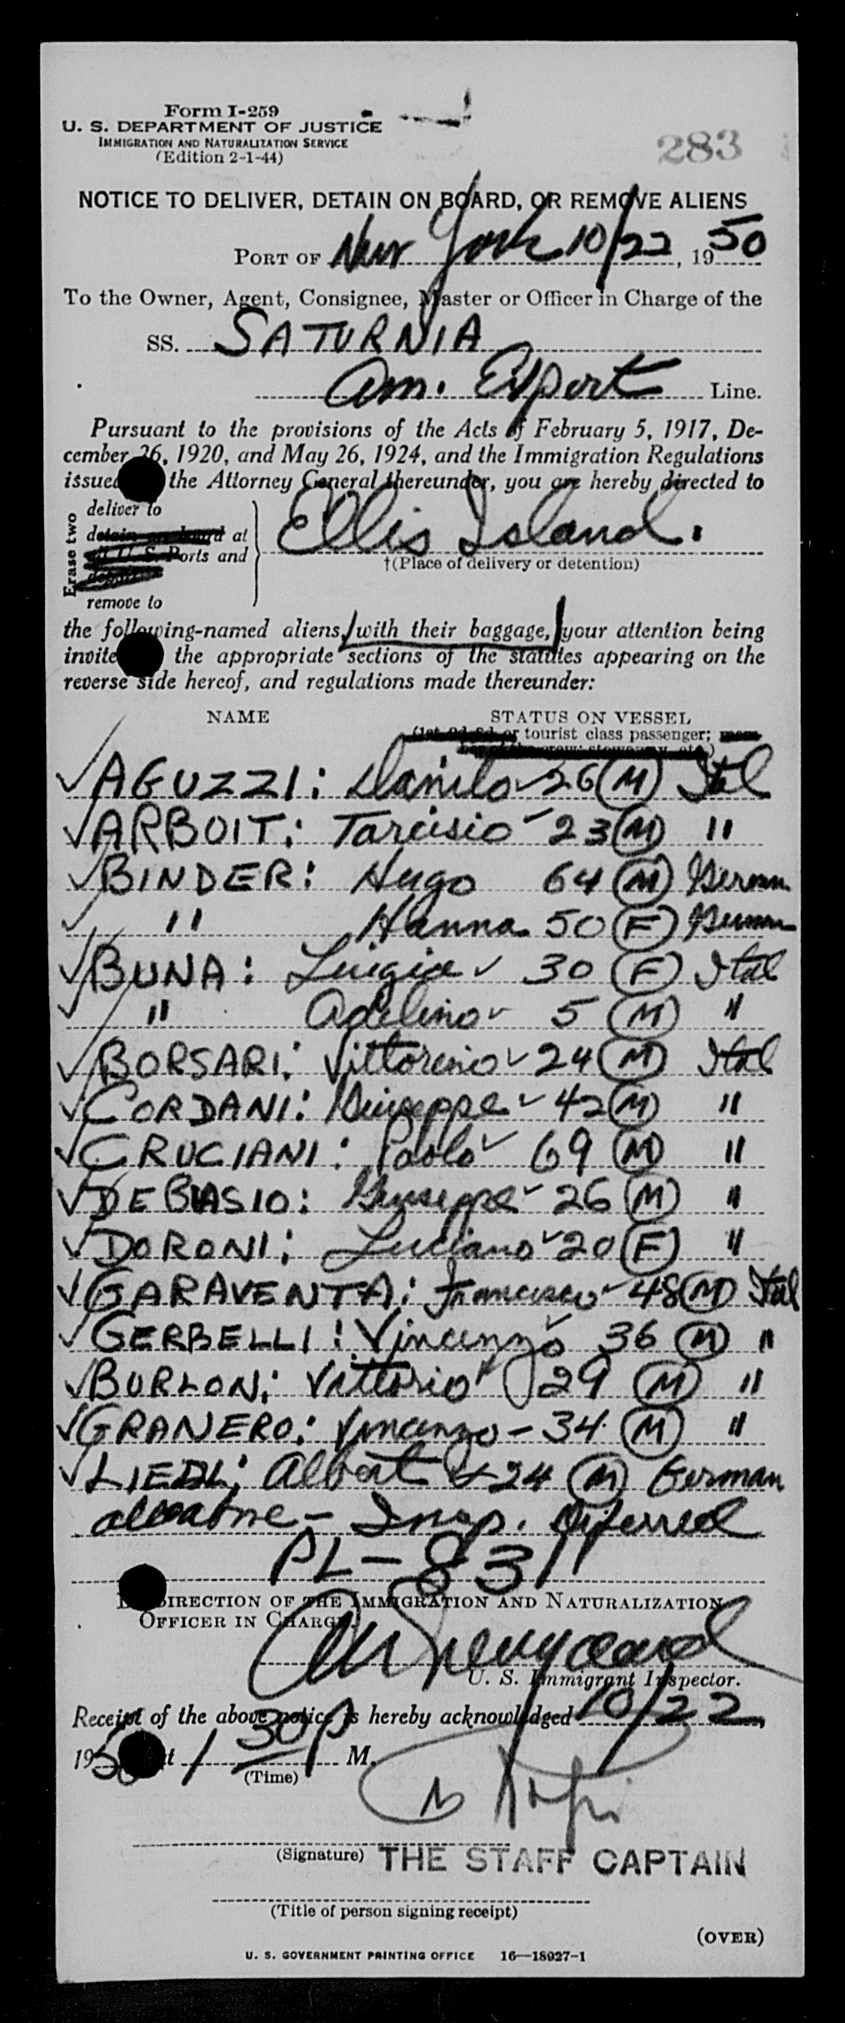 Form I-259
U. S. DEPARTMENT OF JUSTICE
IMMIGRATION AND NATURALIZATION SERVICE
(Edition 2-1-44)
283
NOTICE TO DELIVER, DETAIN ON BOARD, OR REMOVE ALIENS
PORT OF New York 10/22, 1950
To the Owner, Agent, Consignee, Master or Officer in Charge of the
SS. SATURNIA
Am. Export Line.
Pursuant to the provisions of the Acts of February 5, 1917, De-
cember 26, 1920, and May 26, 1924, and the Immigration Regulations
issued the Attorney General thereunder, you are hereby directed to
Erase two
deliver to
detain on board at
all U. S. Ports and
deport
remove to
Ellis Island.
†(Place of delivery or detention)
the following-named aliens, with their baggage, your attention being
invite the appropriate sections of the statutes appearing on the
reverse side hereof, and regulations made thereunder:
NAME STATUS ON VESSEL
(1st, 2d, 3d, or tourist class passenger; mem-
ber of the crew; stowaway, etc.)
✓ AGUZZI: Danilo 26 (M) Ital
✓ ARBOIT: Tarcisio 23 (M) "
✓ BINDER: Hugo 64 (M) German
✓ " Hanna 50 (F) German
✓ BUNA: Luigia ✓ 30 (F) Ital
✓ " Adelino ✓ 5 (M) "
✓ BORSARI: Vittorino ✓ 24 (M) Ital
✓ CORDANI: Giuseppe ✓ 42 (M) "
✓ CRUCIANI: Paolo ✓ 69 (M) "
✓ DEBIASIO: Giuseppe ✓ 26 (M) "
✓ DORONI: Luciano ✓ 20 (F) "
✓ GARAVENTA: Francisco ✓ 48 (M) Ital
✓ GERBELLI: Vincenzo ✓ 36 (M) "
✓ BURLON: Vittorio ✓ 29 (M) "
✓ GRANERO: Vincenzo - 34 (M) "
✓ LIEDL: Albert ✓ 24 (M) German
all above - Insp. Deferred
PL-831
DIRECTION OF THE IMMIGRATION AND NATURALIZATION
OFFICER IN CHARGE.
U. S. Immigrant Inspector.
Receipt of the above notice is hereby acknowledged 10/22,
1950 at 1 30 P M.
(Time)
(Signature) THE STAFF CAPTAIN
(Title of person signing receipt)
(OVER)
U. S. GOVERNMENT PRINTING OFFICE 16—18927-1